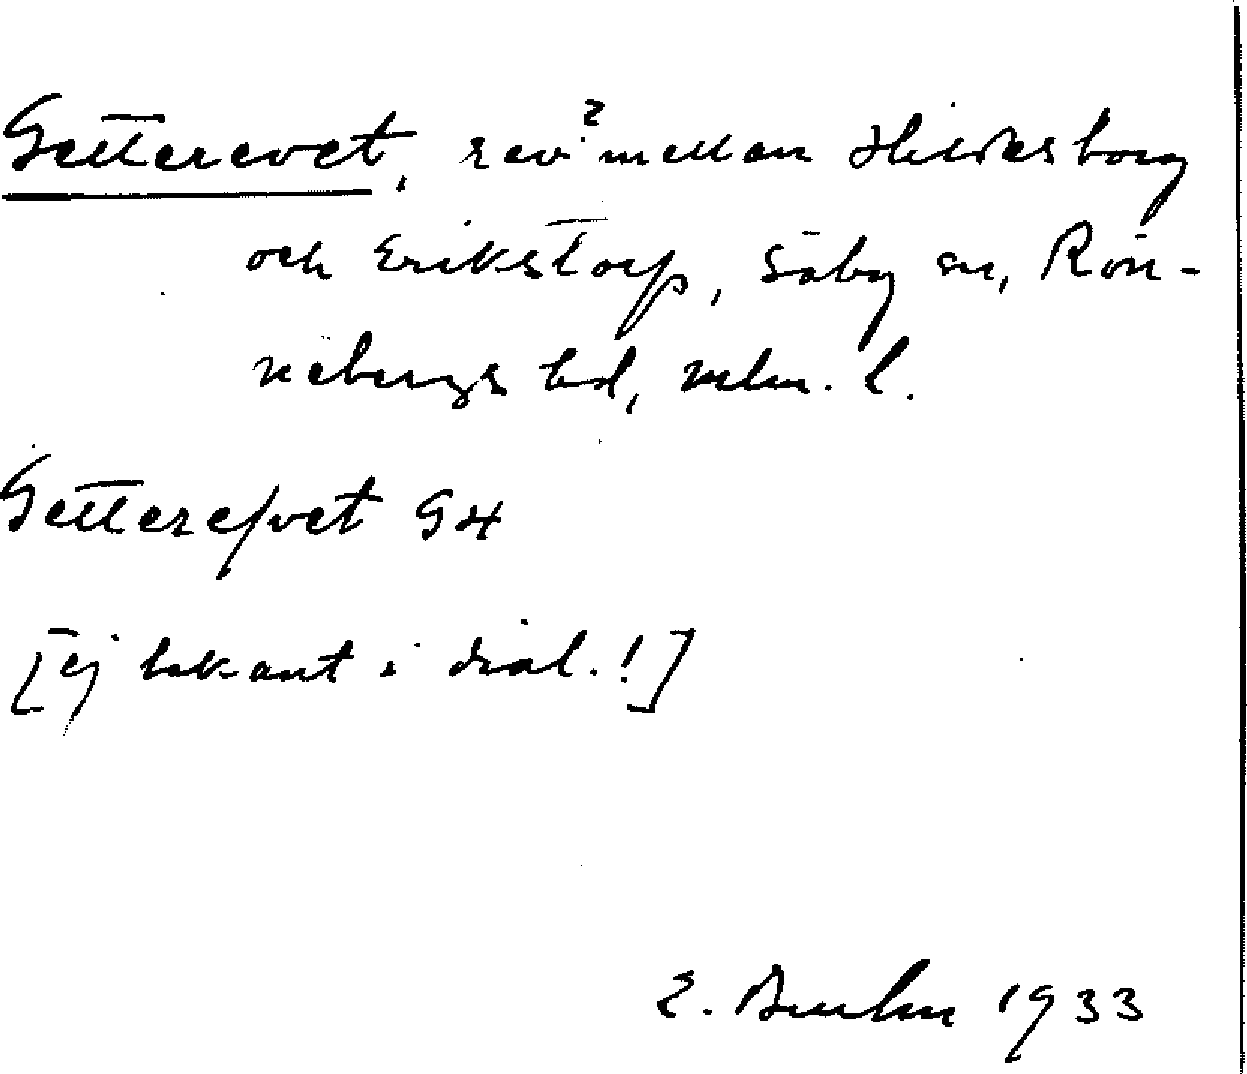 Getterevet, rev ? mellan Hildesborg
och Erikstorp, Säby sn, Rön-
nebergs hd, Mlm. l.
Getterefvet
[ej bekant i dial.!]
1933